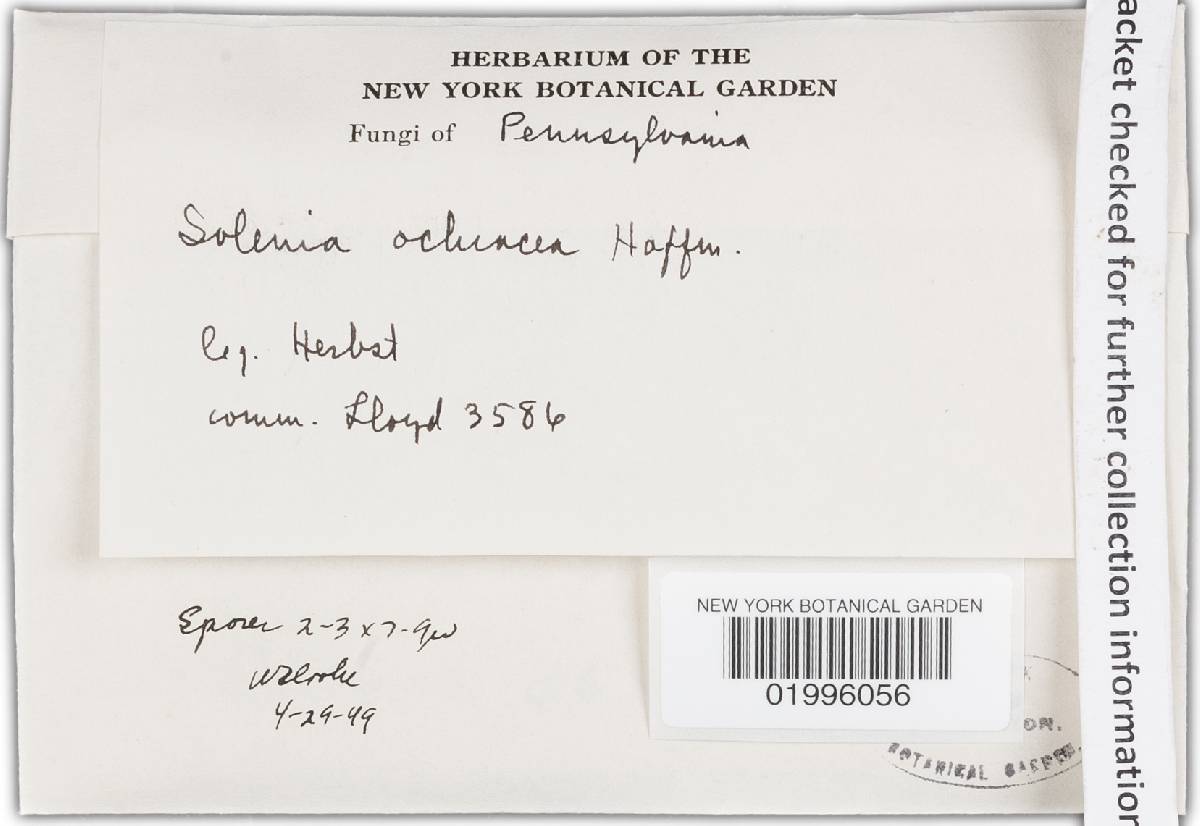 HERBARIUM OF THE
NEW YORK BOTANICAL GARDEN
Fungi of Pennsylvania
Solenia ochracea Hoffm.
leg. Herbst
comm. Lloyd 3586
Spores 2-3 x 7-9µ
WBCooke
4-29-49
NEW YORK BOTANICAL GARDEN
01996056
BOTANICAL GARDEN.
acket checked for further collection information